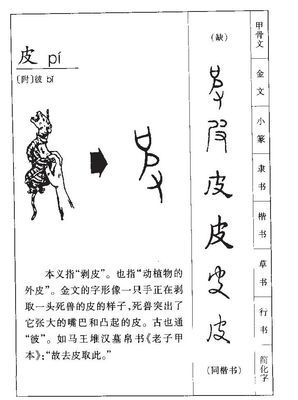 皮 pí
〔附〕彼 bǐ
本义指“剥皮”。也指“动植物的
外皮”。金文的字形像一只手正在剥
取一头死兽的皮的样子，死兽突出了
它张大的嘴巴和凸起的皮。古也通
“彼”。如马王堆汉墓帛书《老子甲
本》：“故去皮取此。”
（缺）
皮
皮
皮
皮
（同楷书）
甲骨文
金文
小篆
隶书
楷书
草书
行书
简化字